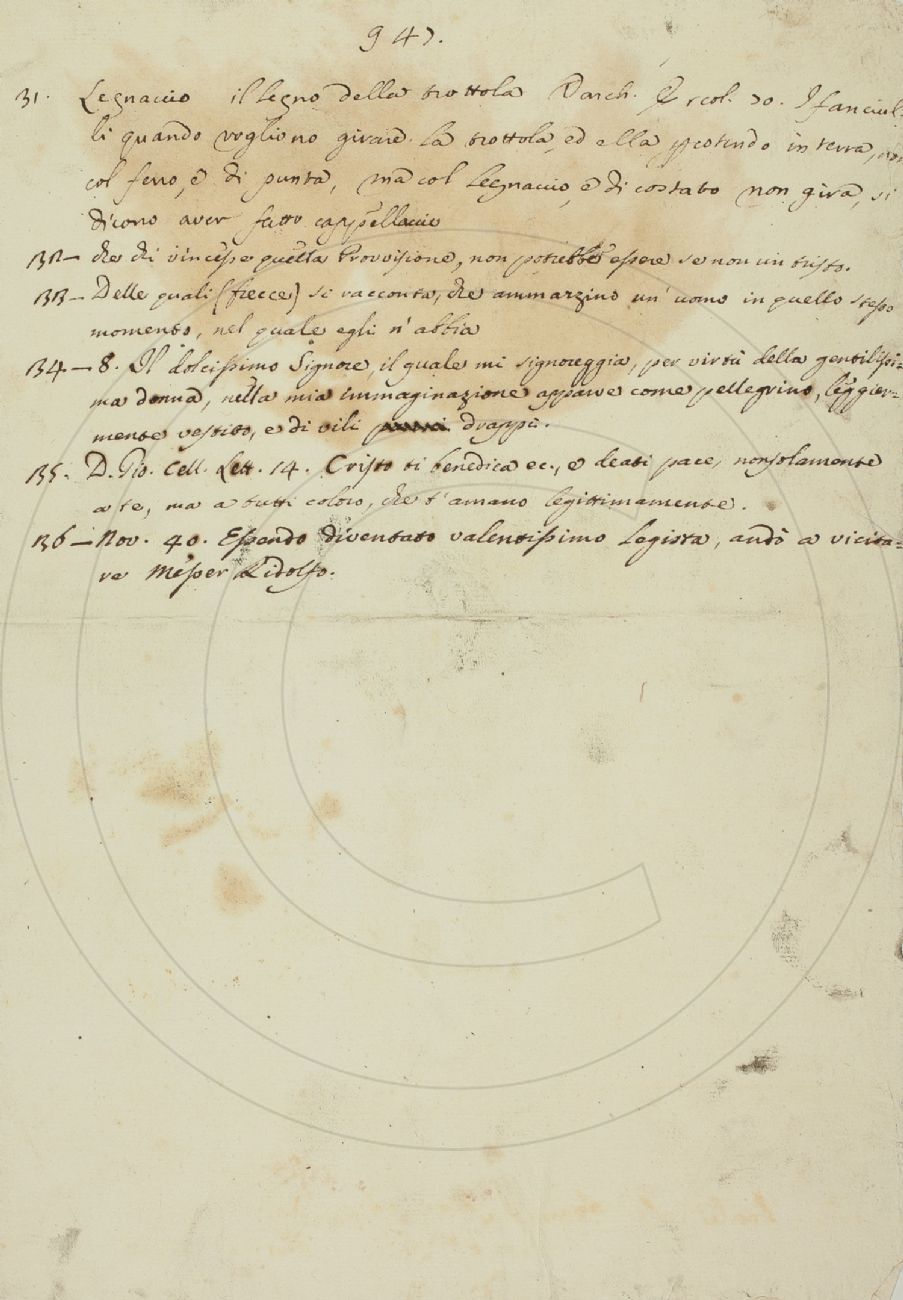 947.
31. Legnaccio il legno della trottola Varch. Ercol. 70. I fanciul=
li quando vogliono girare la trottola, ed ella percotendo in terra, non
col ferro, e di punta, ma col legnaccio, e di costato non gira, si
dicono aver fatto cappellaccio
132 – che chi vincesse quella Provvisione, non potrebbe essere se non un tristo.
133 – Delle quali (frecce) si racconta, che ammazzino un' uomo in quello stesso
momento, nel quale egli n' abbia
134 – 8. Il dolcissimo Signore, il quale mi signoreggia, per virtù della gentilissi=
ma donna, nella mia immaginazione apparve come pellegrino, leggier=
mente vestito, e di vili drappi.
135. D. Gio. Cell. Lett. 14. Cristo ti benedica ec., e deati pace, nonsolamente
a te, ma a tutti coloro, che t' amano legittimamente.
136 – Nov. 40. Essendo diventato valentissimo legista, andò a vicita=
re Messer Ridolfo.